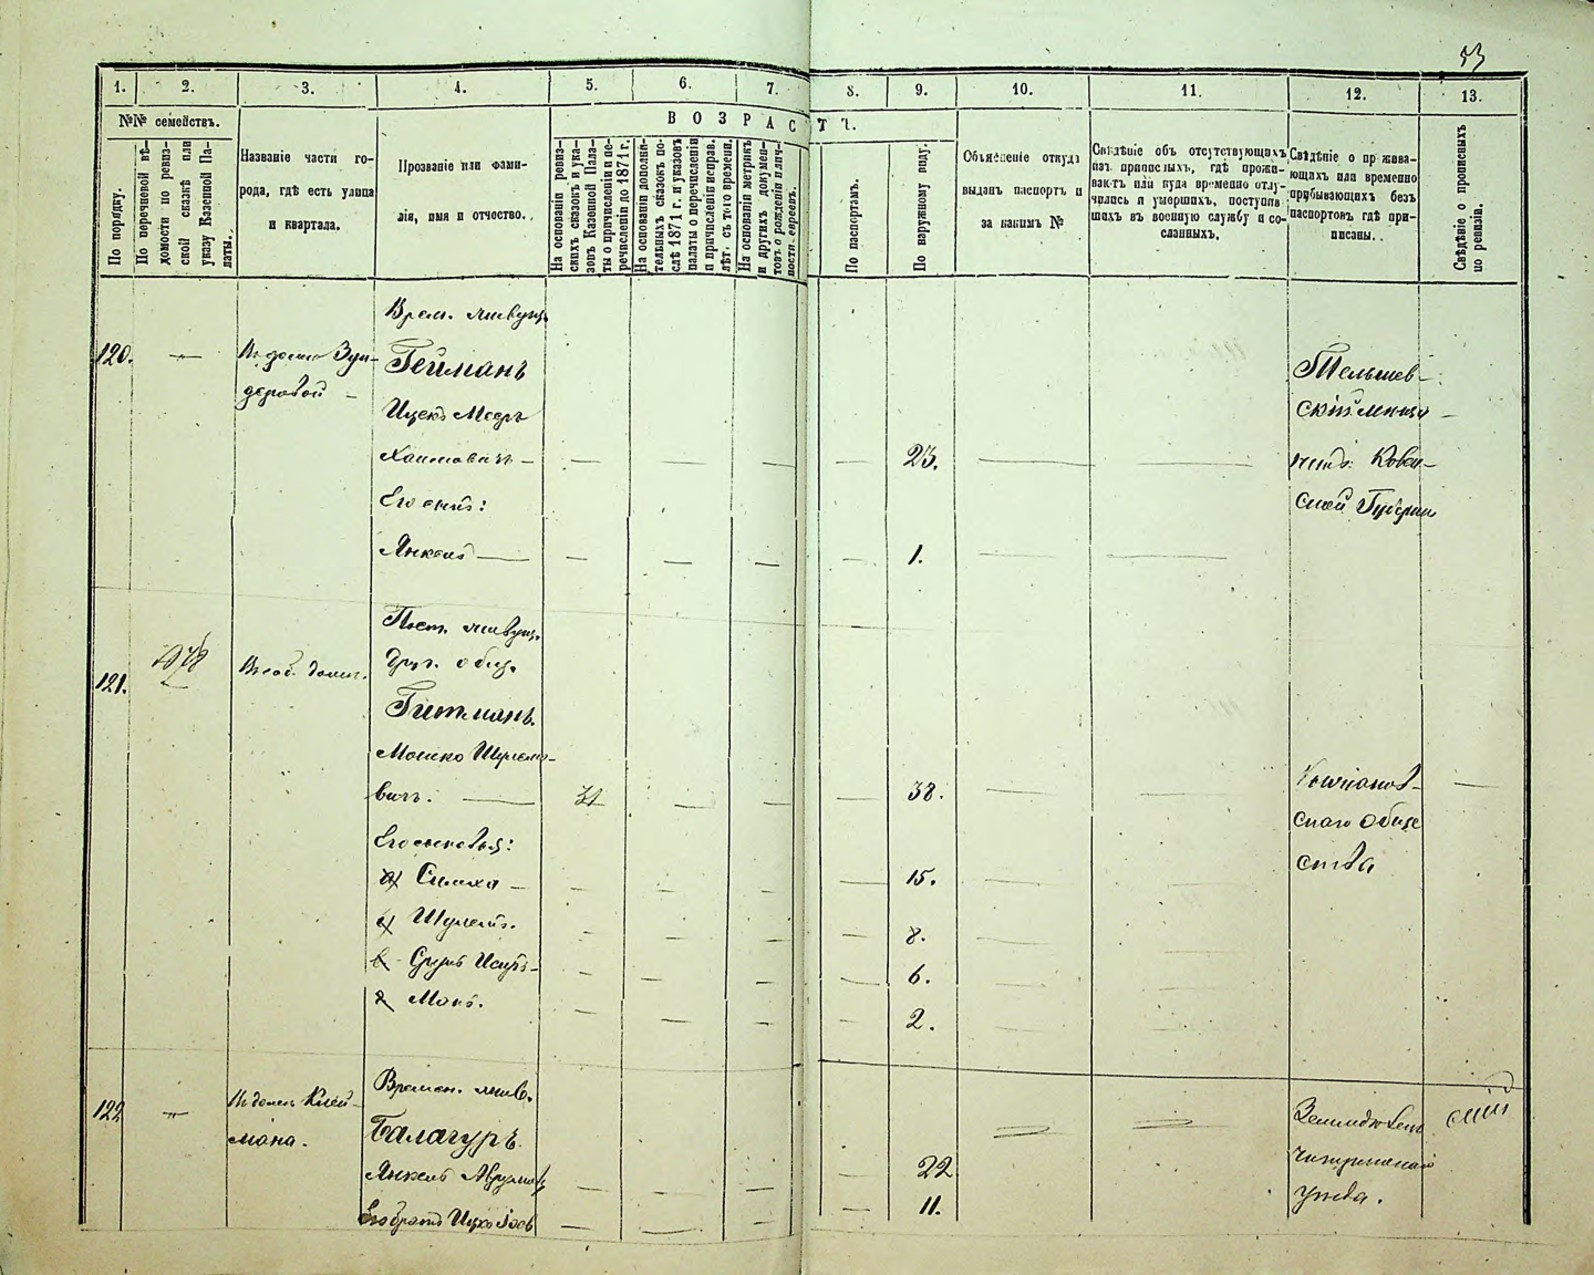 53
1. 2. 3. 4. 5. 6. 7. 8. 9. 10. 11. 12. 13.
№№ семействъ.
По порядку.
По перечневой вѣ-
домости по ревиз-
ской сказкѣ или
указу Казенной Па-
латы.
Названіе части го-
рода, гдѣ есть улица
и квартала.
Прозваніе или фами-
лія, имя и отчество.
ВОЗРАСТЪ.
На основаніи ревиз-
скихъ сказокъ и ука-
зовъ Казенной Пала-
ты о причисленіи и пе-
речисленіи до 1871 г.
На основаніи дополни-
тельныхъ сказокъ по-
слѣ 1871 г. и указовъ
палаты о перечисленіи
и причисленіи исправ.
лѣт. съ того времени.
На основаніи метрикъ
и другихъ докумен-
товъ о рожденіи и лич-
ности евреевъ.
По паспортамъ.
По наружному виду.
Объясненіе откуда
выданъ паспортъ и
за какимъ №
Свѣдѣніе объ отсутствующихъ
изъ приписныхъ, гдѣ прожи-
ваютъ или куда временно отлу-
чились и умершихъ, поступив-
шихъ въ военную службу и со-
сланныхъ.
Свѣдѣніе о прожива-
ющихъ или временно
прибывающихъ безъ
паспортовъ гдѣ при-
писаны.
Свѣдѣніе о прописныхъ
по ревизіи.
Врем. живущ.
120. — Въ домѣ Зун- Гейманъ Тельшев-
деровой — Ицекъ Мееръ скій мѣща-
Хаимовичъ — — — — — 23. — — нинъ Ковен-
Его сынъ: ской Губерніи
Янкель — — — — — 1. — —
Пост. живущ.
друг. общ.
121. Въ соб. домѣ.
Гитманъ.
Мошко Шулемо-
вичъ. — 31 — — — 38. — — —
скаго Обще
ства
Его сыновья:
а) Симха — — — — — 15. — —
б) Шулемъ. — — — — 8. — —
в) Сруль — — — — 6. — —
г) — — — — 2. — —
Времен. жив.
122 — Въ домѣ Клей- Балагуръ
мана.
Янкель — — — — 22
уѣзда.
Его братъ Ицко — — — — 11.